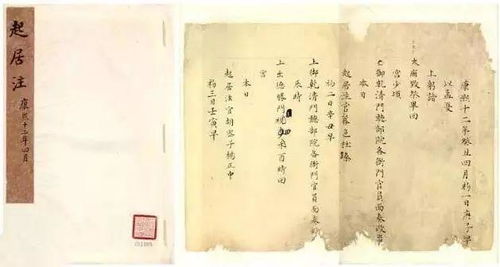 起居注
康熙十二年四月
康熙十二年癸丑四月初一日庚子早
以孟夏
上躬詣
太廟致祭畢回
宮少頃
上御乾清門聽部院各衙門官員面奏政事
本日
起居注官莫色杜臻
初二日辛丑早
上御乾清門聽部院各衙門官員面奏政
辰時
上出德勝門觀時回
宮
本日
起居注官胡密子楊正中
初三日壬寅早